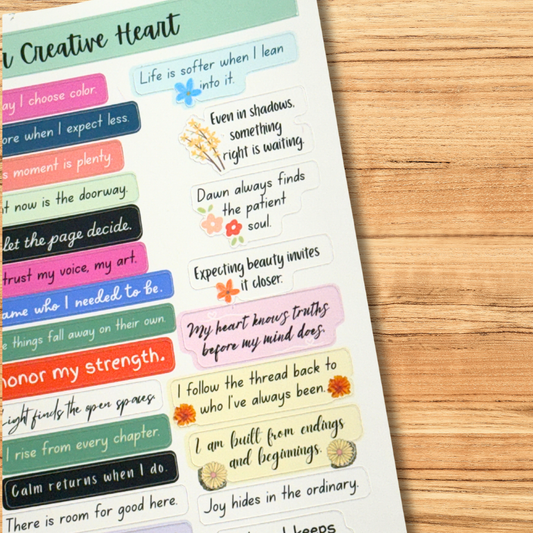 Creative Heart
I choose color.
when I expect less.
moment is plenty.
now is the doorway.
let the page decide.
trust my voice, my art.
who I needed to be.
things fall away on their own.
honor my strength.
Light finds the open spaces.
I rise from every chapter.
Calm returns when I do.
There is room for good here.
Life is softer when I lean
into it.
Even in shadows,
something
right is waiting.
Dawn always finds
the patient
soul.
Expecting beauty invites
it closer.
My heart knows truths
before my mind does.
I follow the thread back to
who I've always been.
I am built from endings
and beginnings.
Joy hides in the ordinary.
keeps